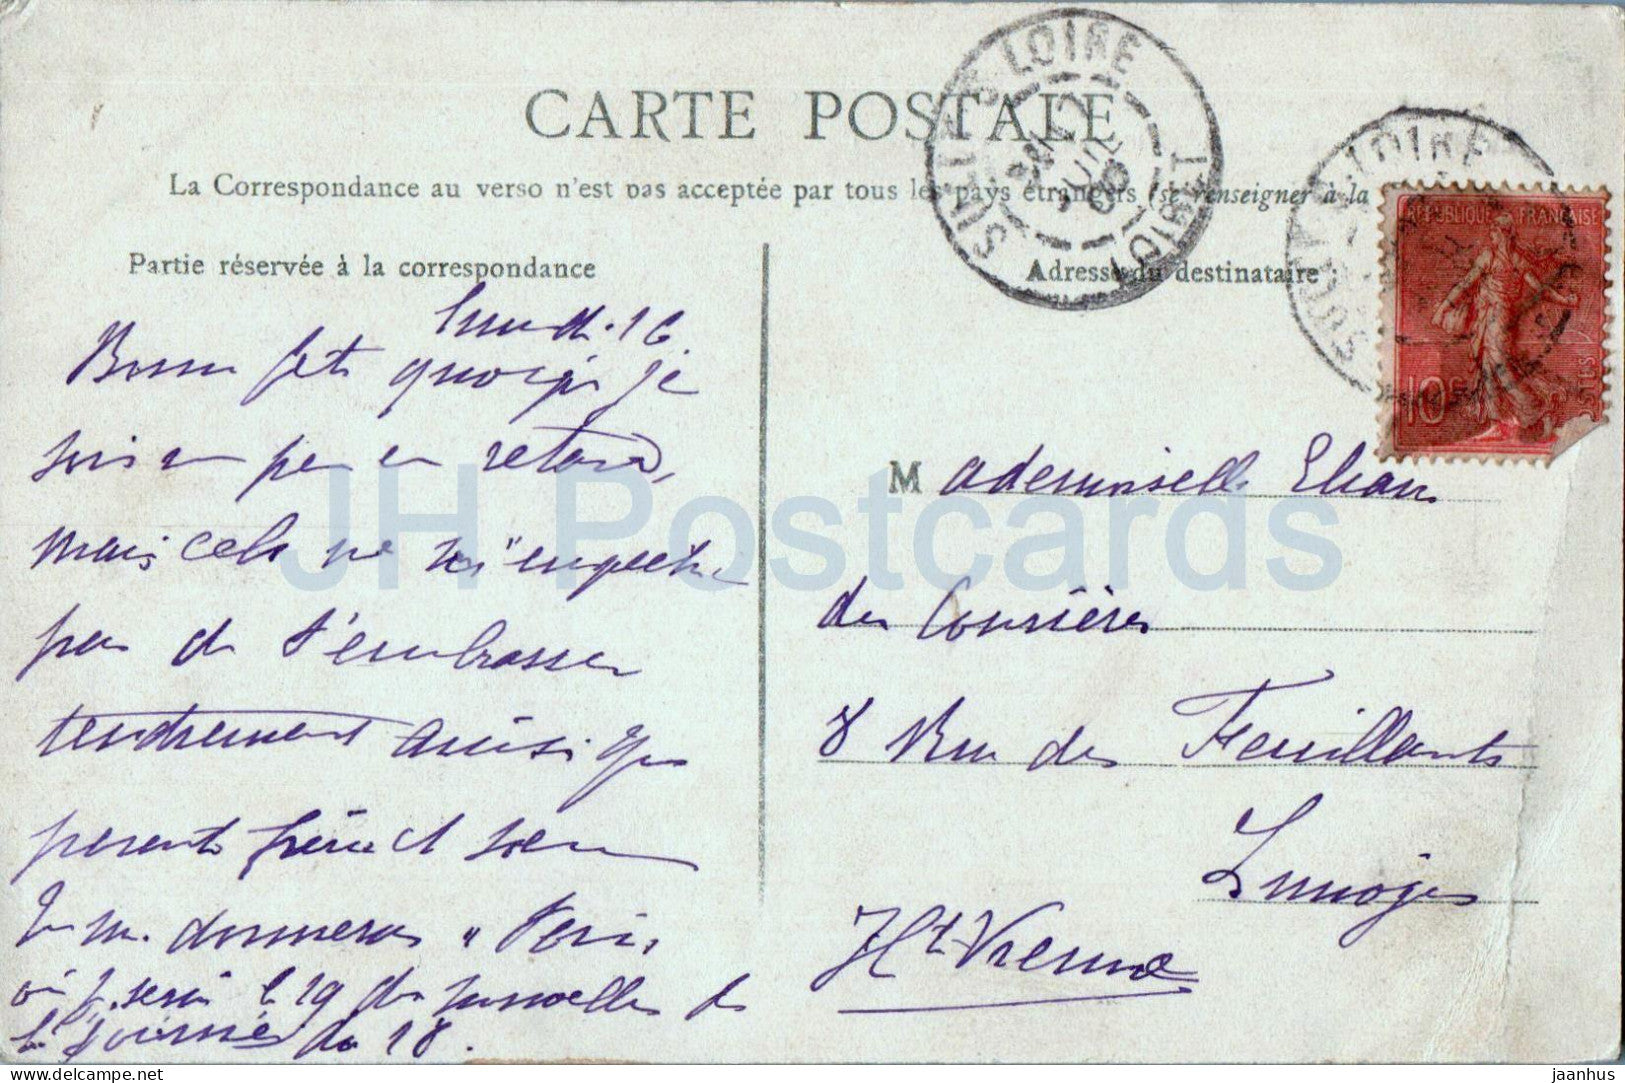 CARTE POSTALE
La Correspondance au verso n'est pas acceptée par tous les pays étrangers (se renseigner à la
Partie réservée à la correspondance
Adresse du destinataire :
LOIRE
LOIRE
REPUBLIQUE FRANÇAISE
10
POSTES
lundi 16
Bonne fête quoique je
suis un peu en retard,
mais cela ne m'empêche
pas de t'embrasser
tendrement ainsi que
parents frère et sœur
Tu me donneras à Paris
où je serai le 19 des nouvelles de
la journée du 18.
Mademoiselle Eliane
des Coursières
8 Rue des Feuillants
Limoges
Hte Vienne
JH Postcards
jaanhus